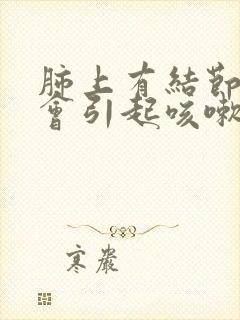 肺上有結節
會引起咳嗽
寒巖